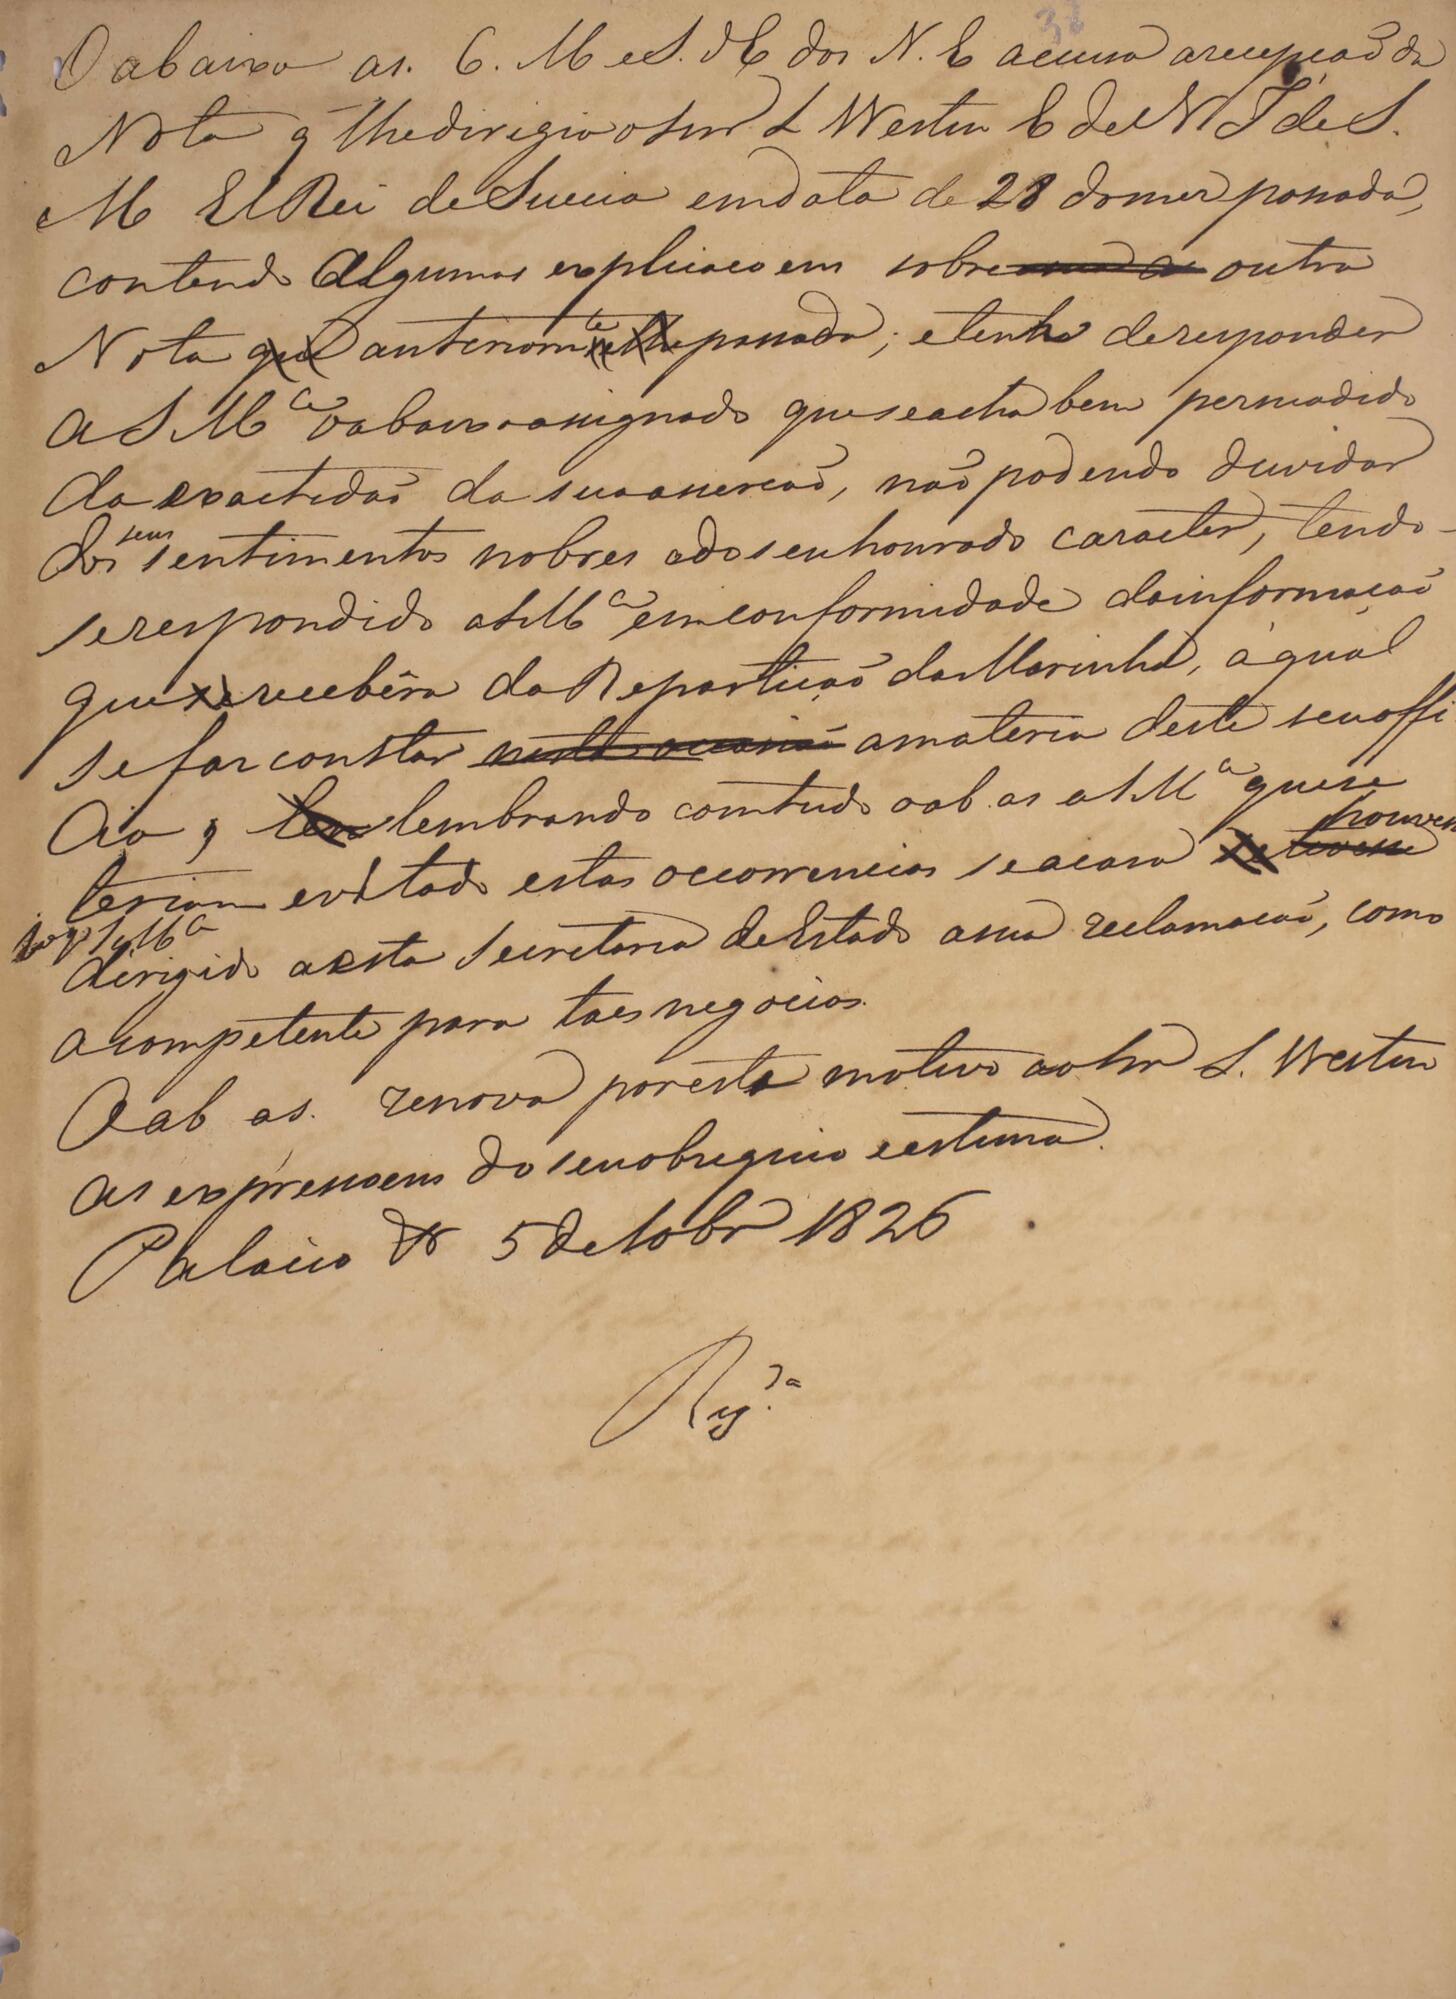 O abaixo as. C. M e S. d'E dos N. E accusa a recepção da
Nota q̃ lhe dirigio o Snr L Westin E de N J de S.
M El Rei de Suecia em data de 28 do mez passado,
contendo Algumas explicacoens sobre outra
Nota anteriormte passada; e tenho de responder
a S Mce o abaixo assignado que se acha bem persuadido
da exactidaõ da sua asserçaõ, naõ podendo duvidar
dos seus sentimentos nobres e do seu honrado caracter, tendo-
se respondido a S Mce em conformidade da informaçaõ
que recebêra da Repartiçaõ da Marinha, á qual
se faz constar a materia deste seu offi
cio, lembrando comtudo o ab. as a S Mce que se
teriam evitado estas occorrencias se acaso houvesse
logo S Mce
dirigido a esta Secretaria de Estado a sua reclamaçaõ, como
a competente para taes negocios.
O ab as. renova por este motivo ao Snr L. Westin
as expressoens do seu obsequio e estima.
Palacio 5 de 10br 1826
Reg.da